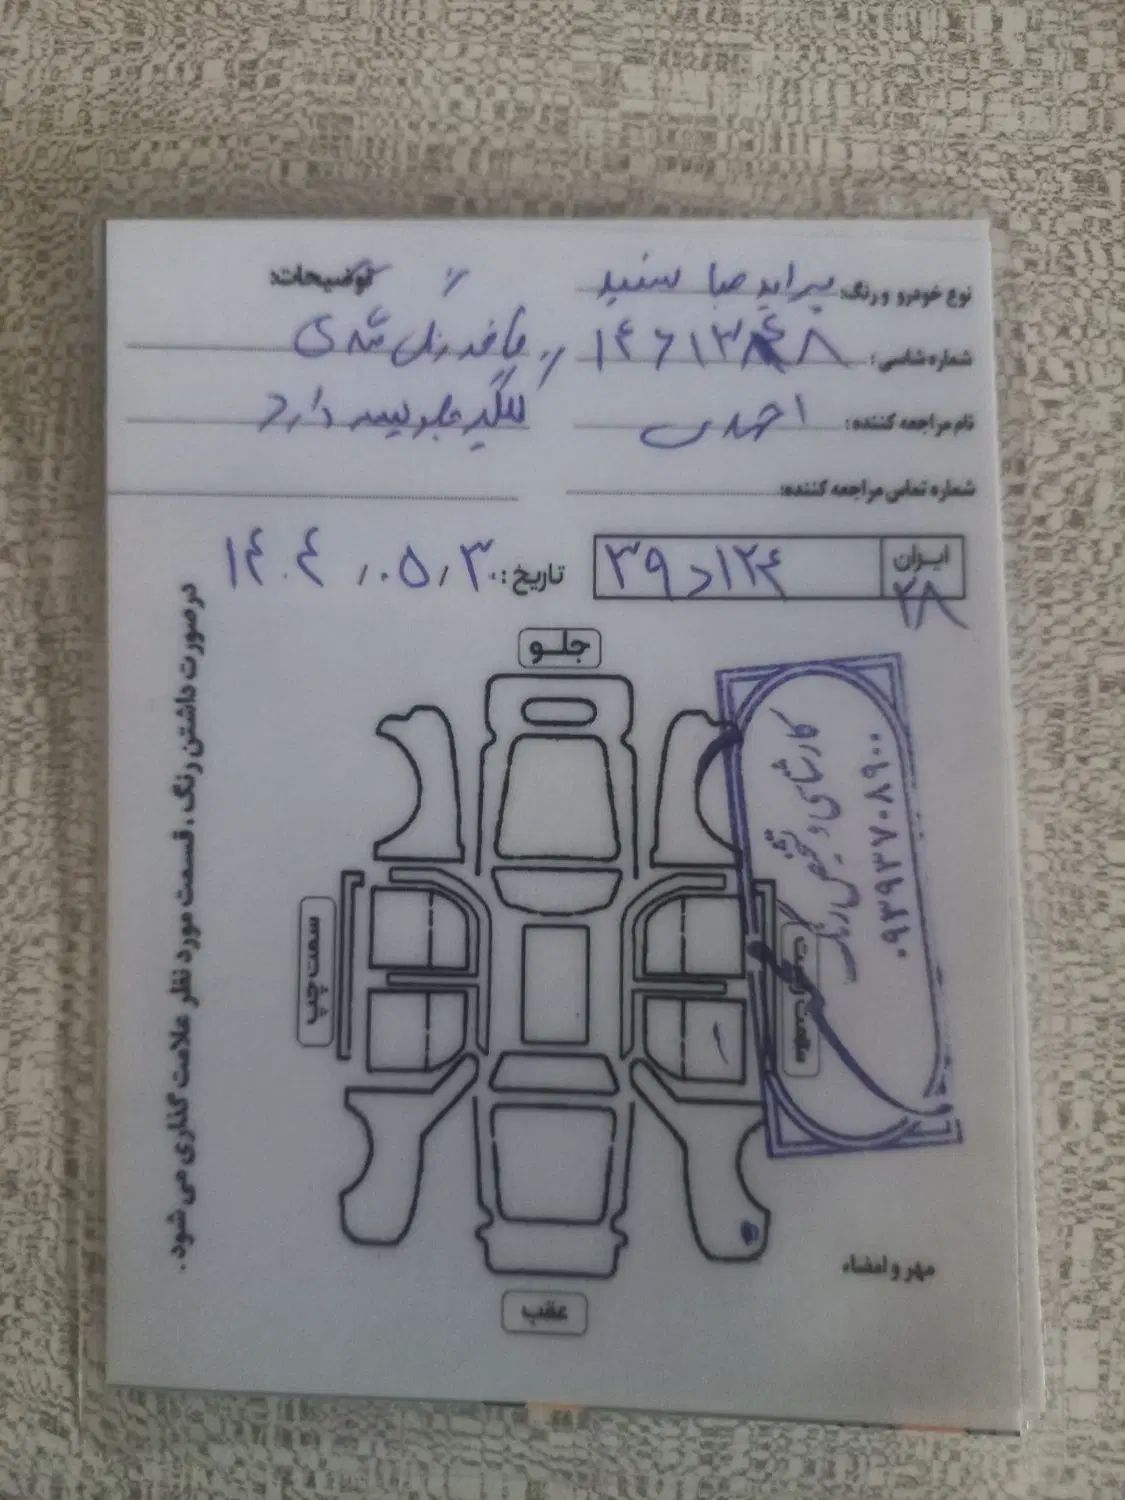 نوع خودرو و رنگ: پراید صبا سفید
توضیحات:
شماره شاسی:
فاقد رنگ شدگی
نام مراجعه کننده: احمدی
گلگیر جلو لیسه دارد
شماره تماس مراجعه کننده:
ایران ۲۸
۱۲۴ د ۳۹
تاریخ: ۱۴۰۴/۰۵/۳۰
جلو
سمت چپ
سمت راست
عقب
در صورت داشتن رنگ، قسمت مورد نظر علامت گذاری می شود.
کارشناسی و تشخیص رنگ
۰۹۳۹۳۷۰۸۹۰۰
مهر و امضاء